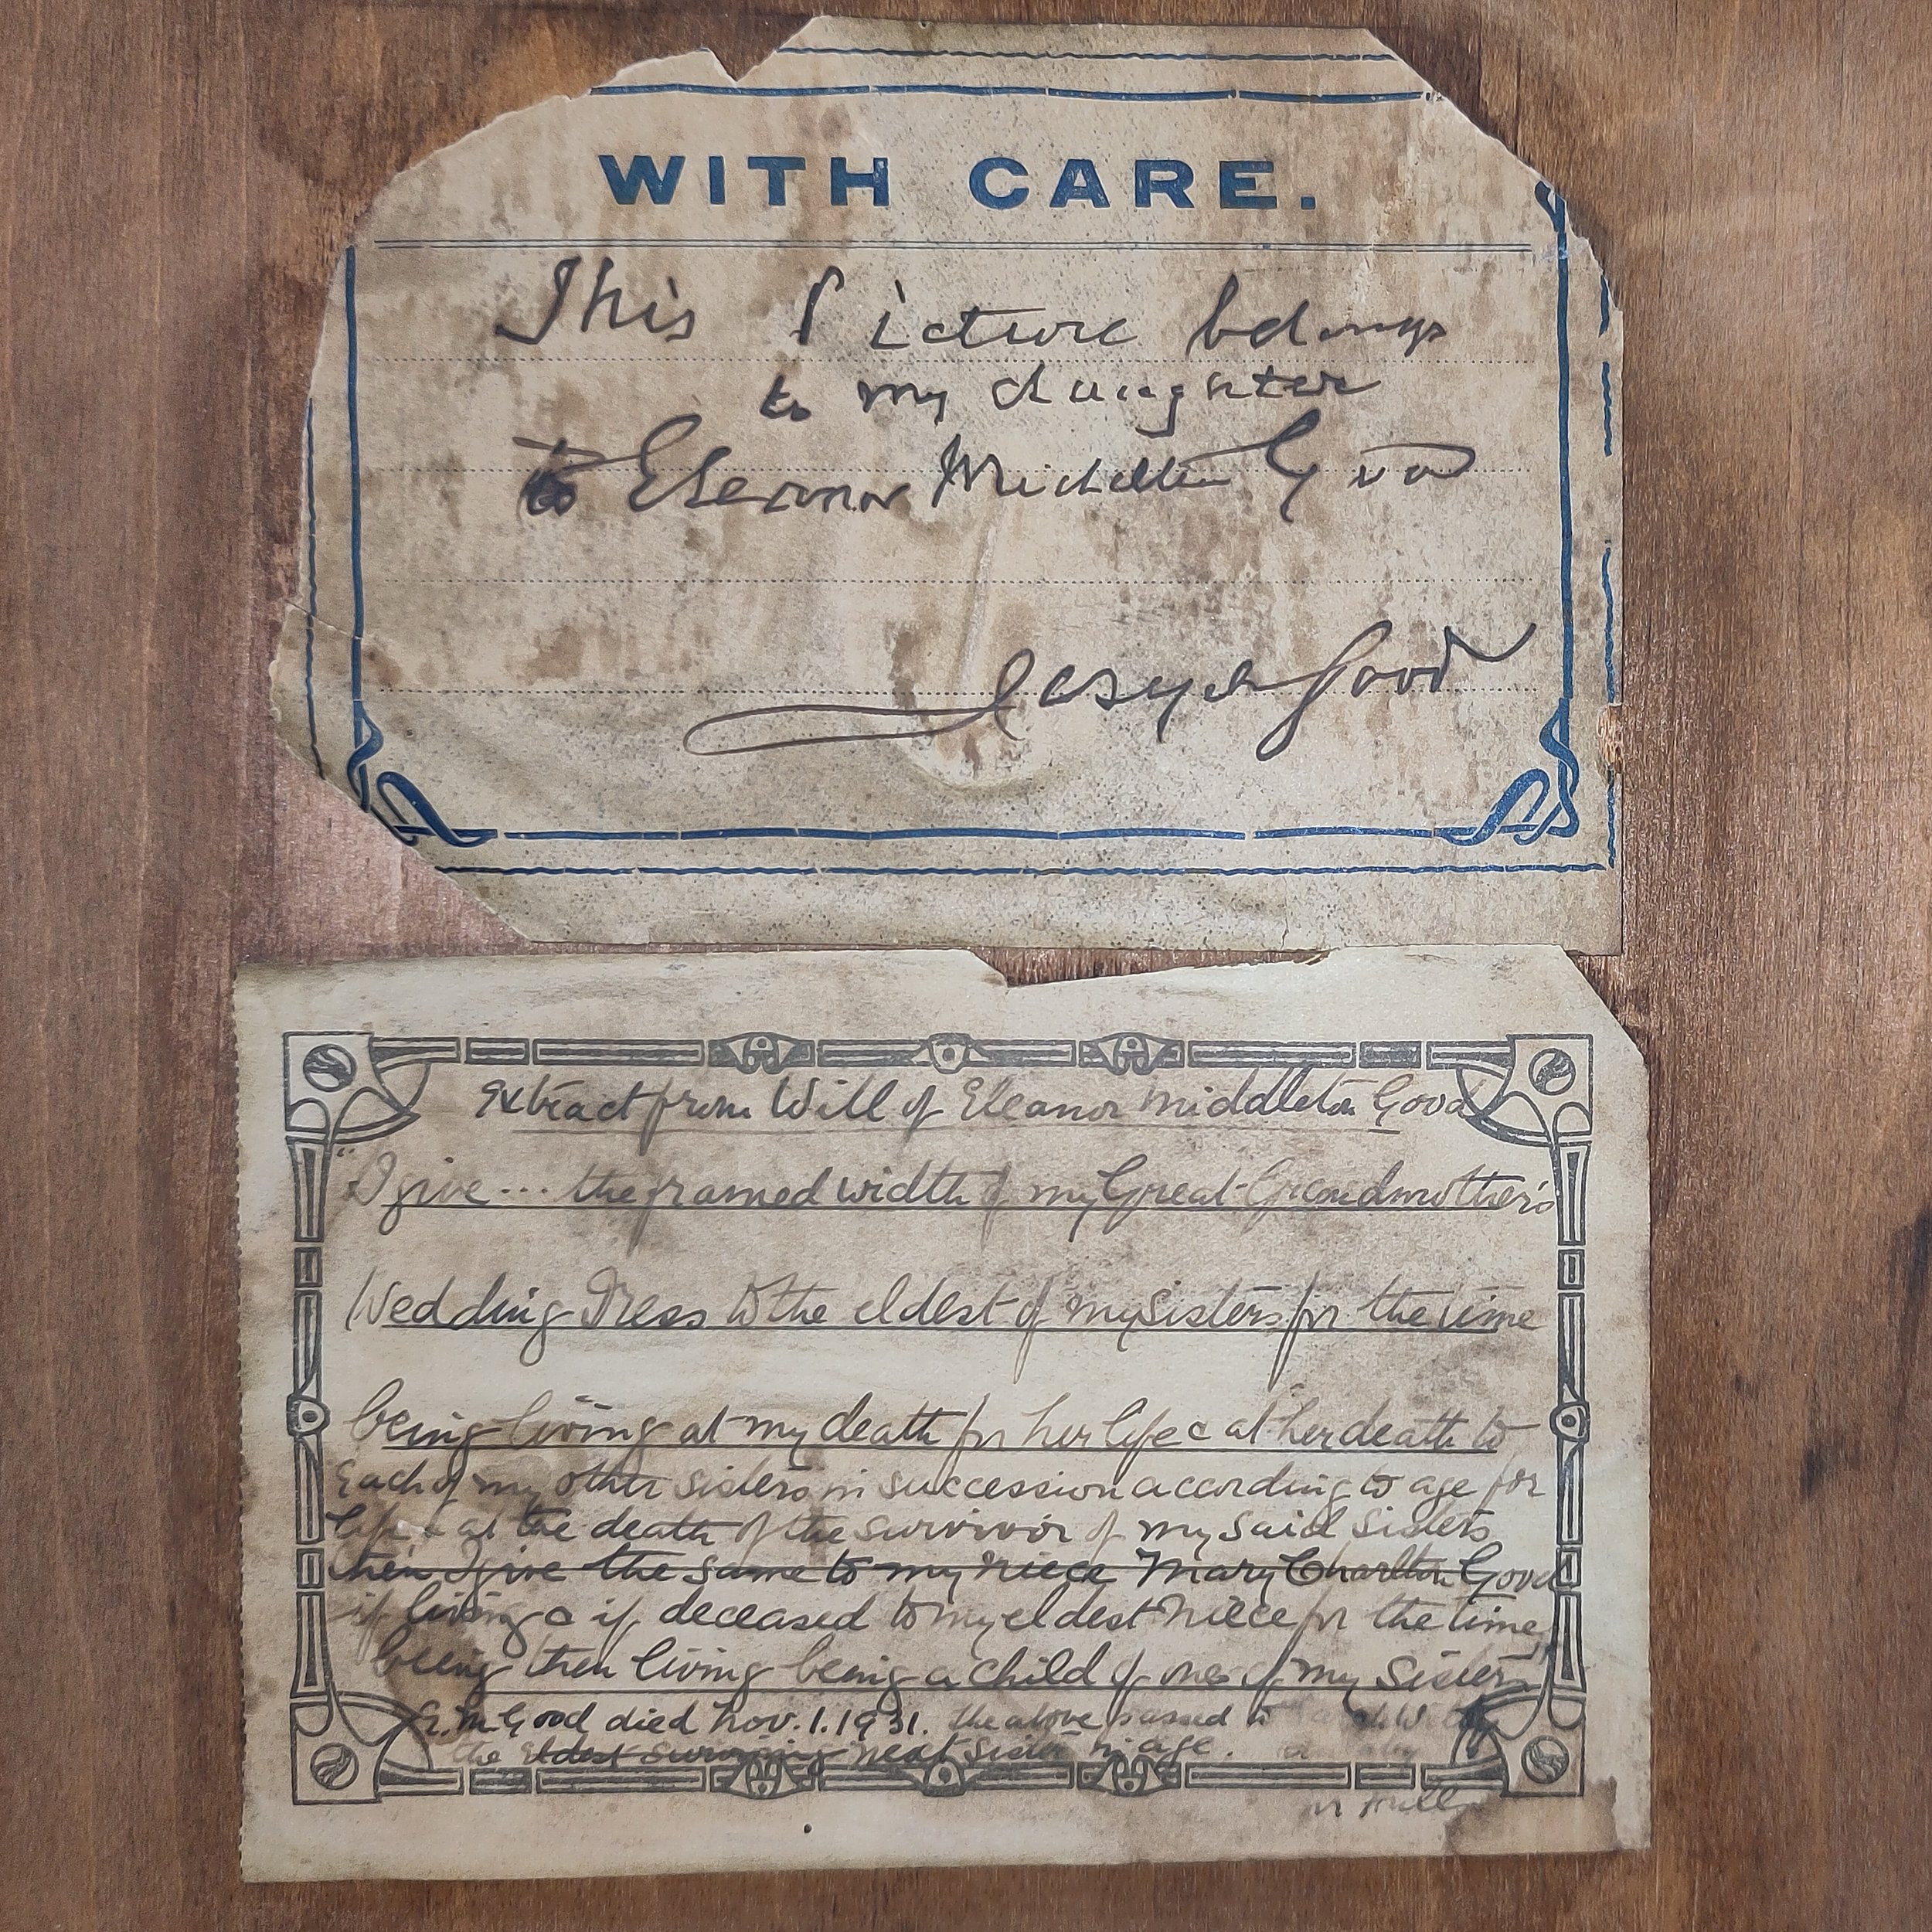 WITH CARE.
This Picture belongs
to my daughter
to Eleanor Middleton Good
Joseph Good
Extract from Will of Eleanor Middleton Good
"I give ... the framed width of my Great-Grandmother's
Wedding Dress to the eldest of my Sisters for the time
being living at my death for her life & at her death to
Each of my other sisters in succession according to age for
life & at the death of the survivor of my said sisters
then I give the same to my niece Mary Charlton Good
if living & if deceased to my eldest niece for the time
being then living being a child of one of my sisters"
E.M. Good died Nov. 1. 1931. the above passed to
the eldest surviving next sister in age.